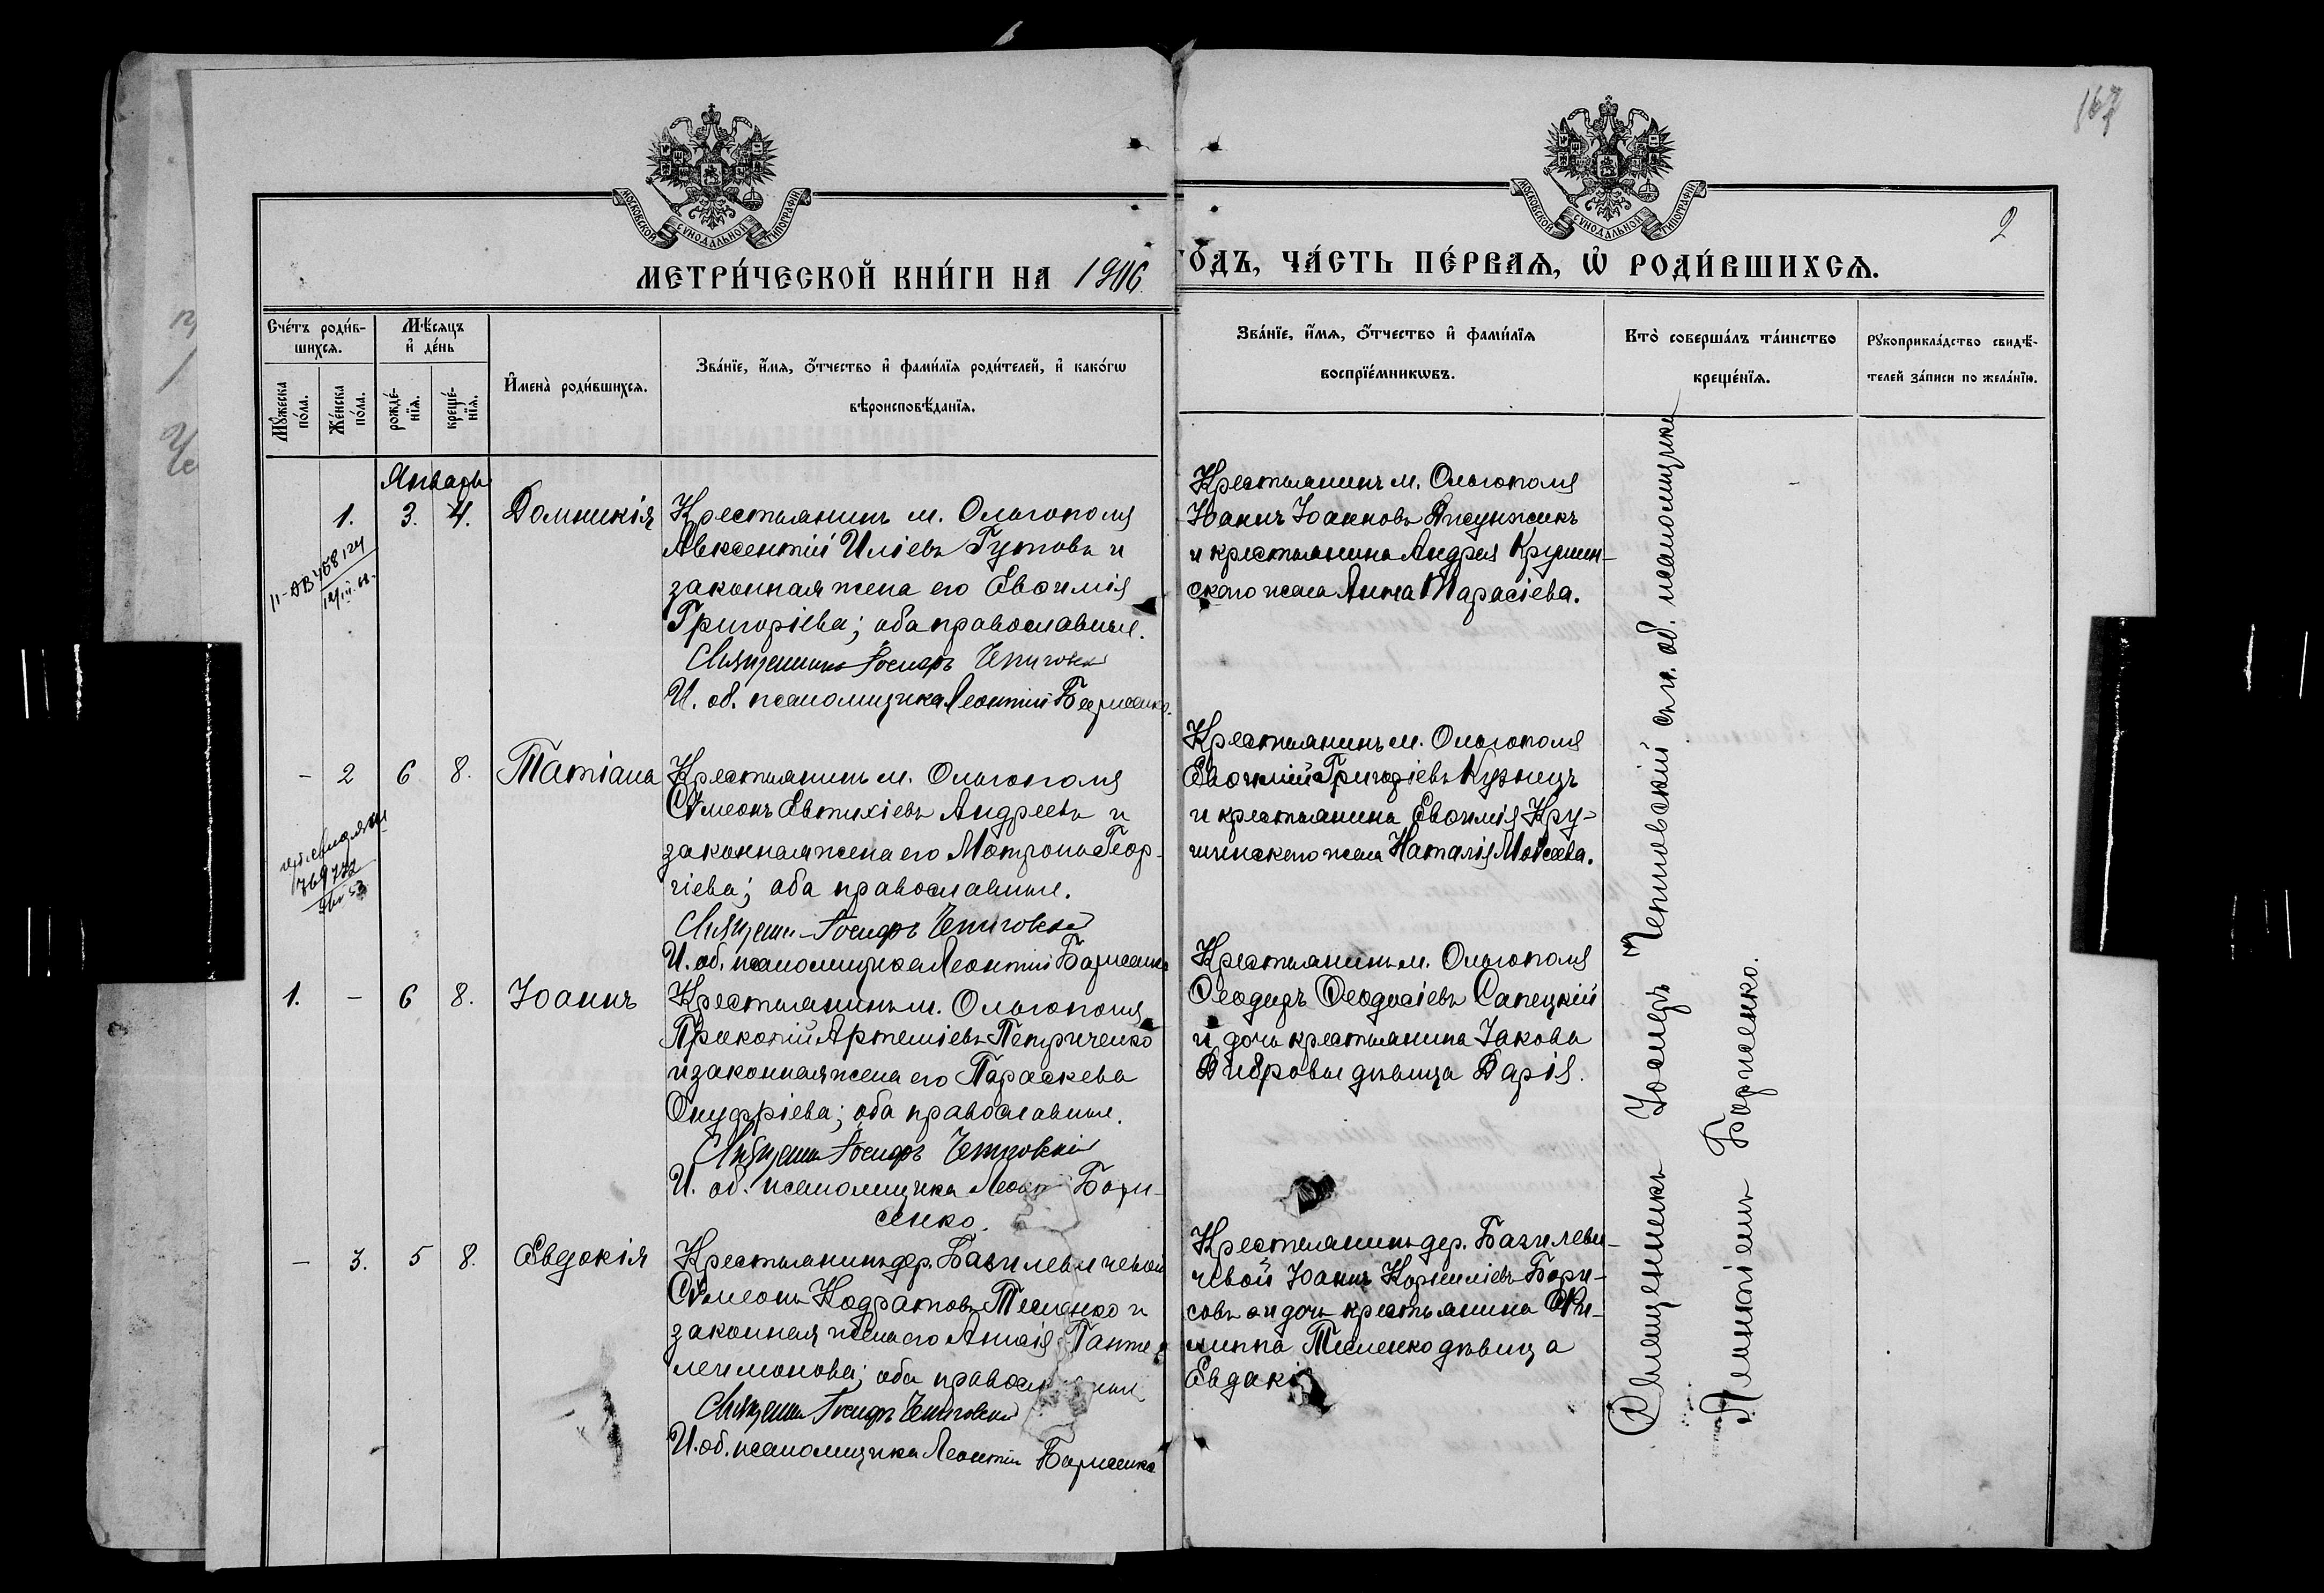 167
МОСКОВСКОЙ СѴНОДАЛЬНОЙ ТИПОГРАФІИ
МОСКОВСКОЙ СѴНОДАЛЬНОЙ ТИПОГРАФІИ
2
МЕТРИ́ЧЕСКОЙ КНИ́ГИ НА 1906 ГО́ДЪ, ЧА́СТЬ ПЕ́РВАѦ, Ѡ҆ РОДИ́ВШИХСѦ.
Сче́тъ роди́в-
шихсѧ.
Мꙋ́жеска по́ла.
Же́нска по́ла.
Мѣ́сѧцъ
и҆ де́нь
рожде́-нїѧ.
креще́-нїѧ.
И҆мена̀ роди́вшихсѧ.
Зва́нїе, и҆́мѧ, ѻ҆́тчество и҆ фами́лїѧ роди́телей, и҆ како́гѡ
вѣроисповѣ́данїѧ.
Зва́нїе, и҆́мѧ, ѻ҆́тчество и҆ фами́лїѧ
воспрїе́мникѡвъ.
Кто̀ соверша́лъ та́инство
креще́нїѧ.
Рꙋкоприкла́дство свидѣ́-
телей за́писи по жела́нїю.
Январь
1. 3. 4. Домникія
Крестьянинъ м. Ольгополя
Авксентій Иліевъ Гутовъ и
законная жена его Евѳимія
Григоріева; оба православные.
Священникъ Іосифъ Чепиговскій
И. об. псаломщика Леонтій Борисенко.
Крестьянинъ м. Ольгополя
Іоаннъ Іоанновъ
и крестьянина Андрея Крушин-
скаго жена Анна Тарасіева.
- 2 6 8. Татіана
Крестьянинъ м. Ольгополя
Сѵмеонъ Евтихіевъ Андреевъ и
законная жена его Матрона Геор-
гіева; оба православные.
Священникъ Іосифъ Чепиговскій
И. об. псаломщика Леонтій Борисенко
Крестьянинъ м. Ольгополя
Евѳимій Григоріевъ Кузнецъ
и крестьянина Евѳимія Кру-
шинскаго жена Наталія Моѵсеева.
1. - 6 8. Іоаннъ
Крестьянинъ м. Ольгополя
Прокопій Артеміевъ Петриченко
и законная жена его Параскева
Онуфріева; оба православные.
Священникъ Іосифъ Чепиговскій
И. об. псаломщика Леонтій Бори-
сенко.
Крестьянинъ м. Ольгополя
Ѳеодоръ Ѳеодосіевъ Сапецкій
и дочь крестьянина Іакова
Дибровы дѣвица Дарія.
- 3. 5 8. Евдокія
Крестьянинъ дер. Базилевичевой
Сѵмеонъ Кодратовъ Тесленко и
законная жена его Анна Панте-
леимонова; оба православные
Священникъ Іосифъ Чепиговскій
И. об. псаломщика Леонтій Борисенко
Крестьянинъ дер. Базилеви-
чевой Іоаннъ Корниліевъ Бори-
совъ и дочь крестьянина Фи-
липпа Тесленко дѣвица
Евдокія
Священникъ Іосифъ Чепиговскій съ и. об. псаломщика
Леонтіемъ Борисенко.